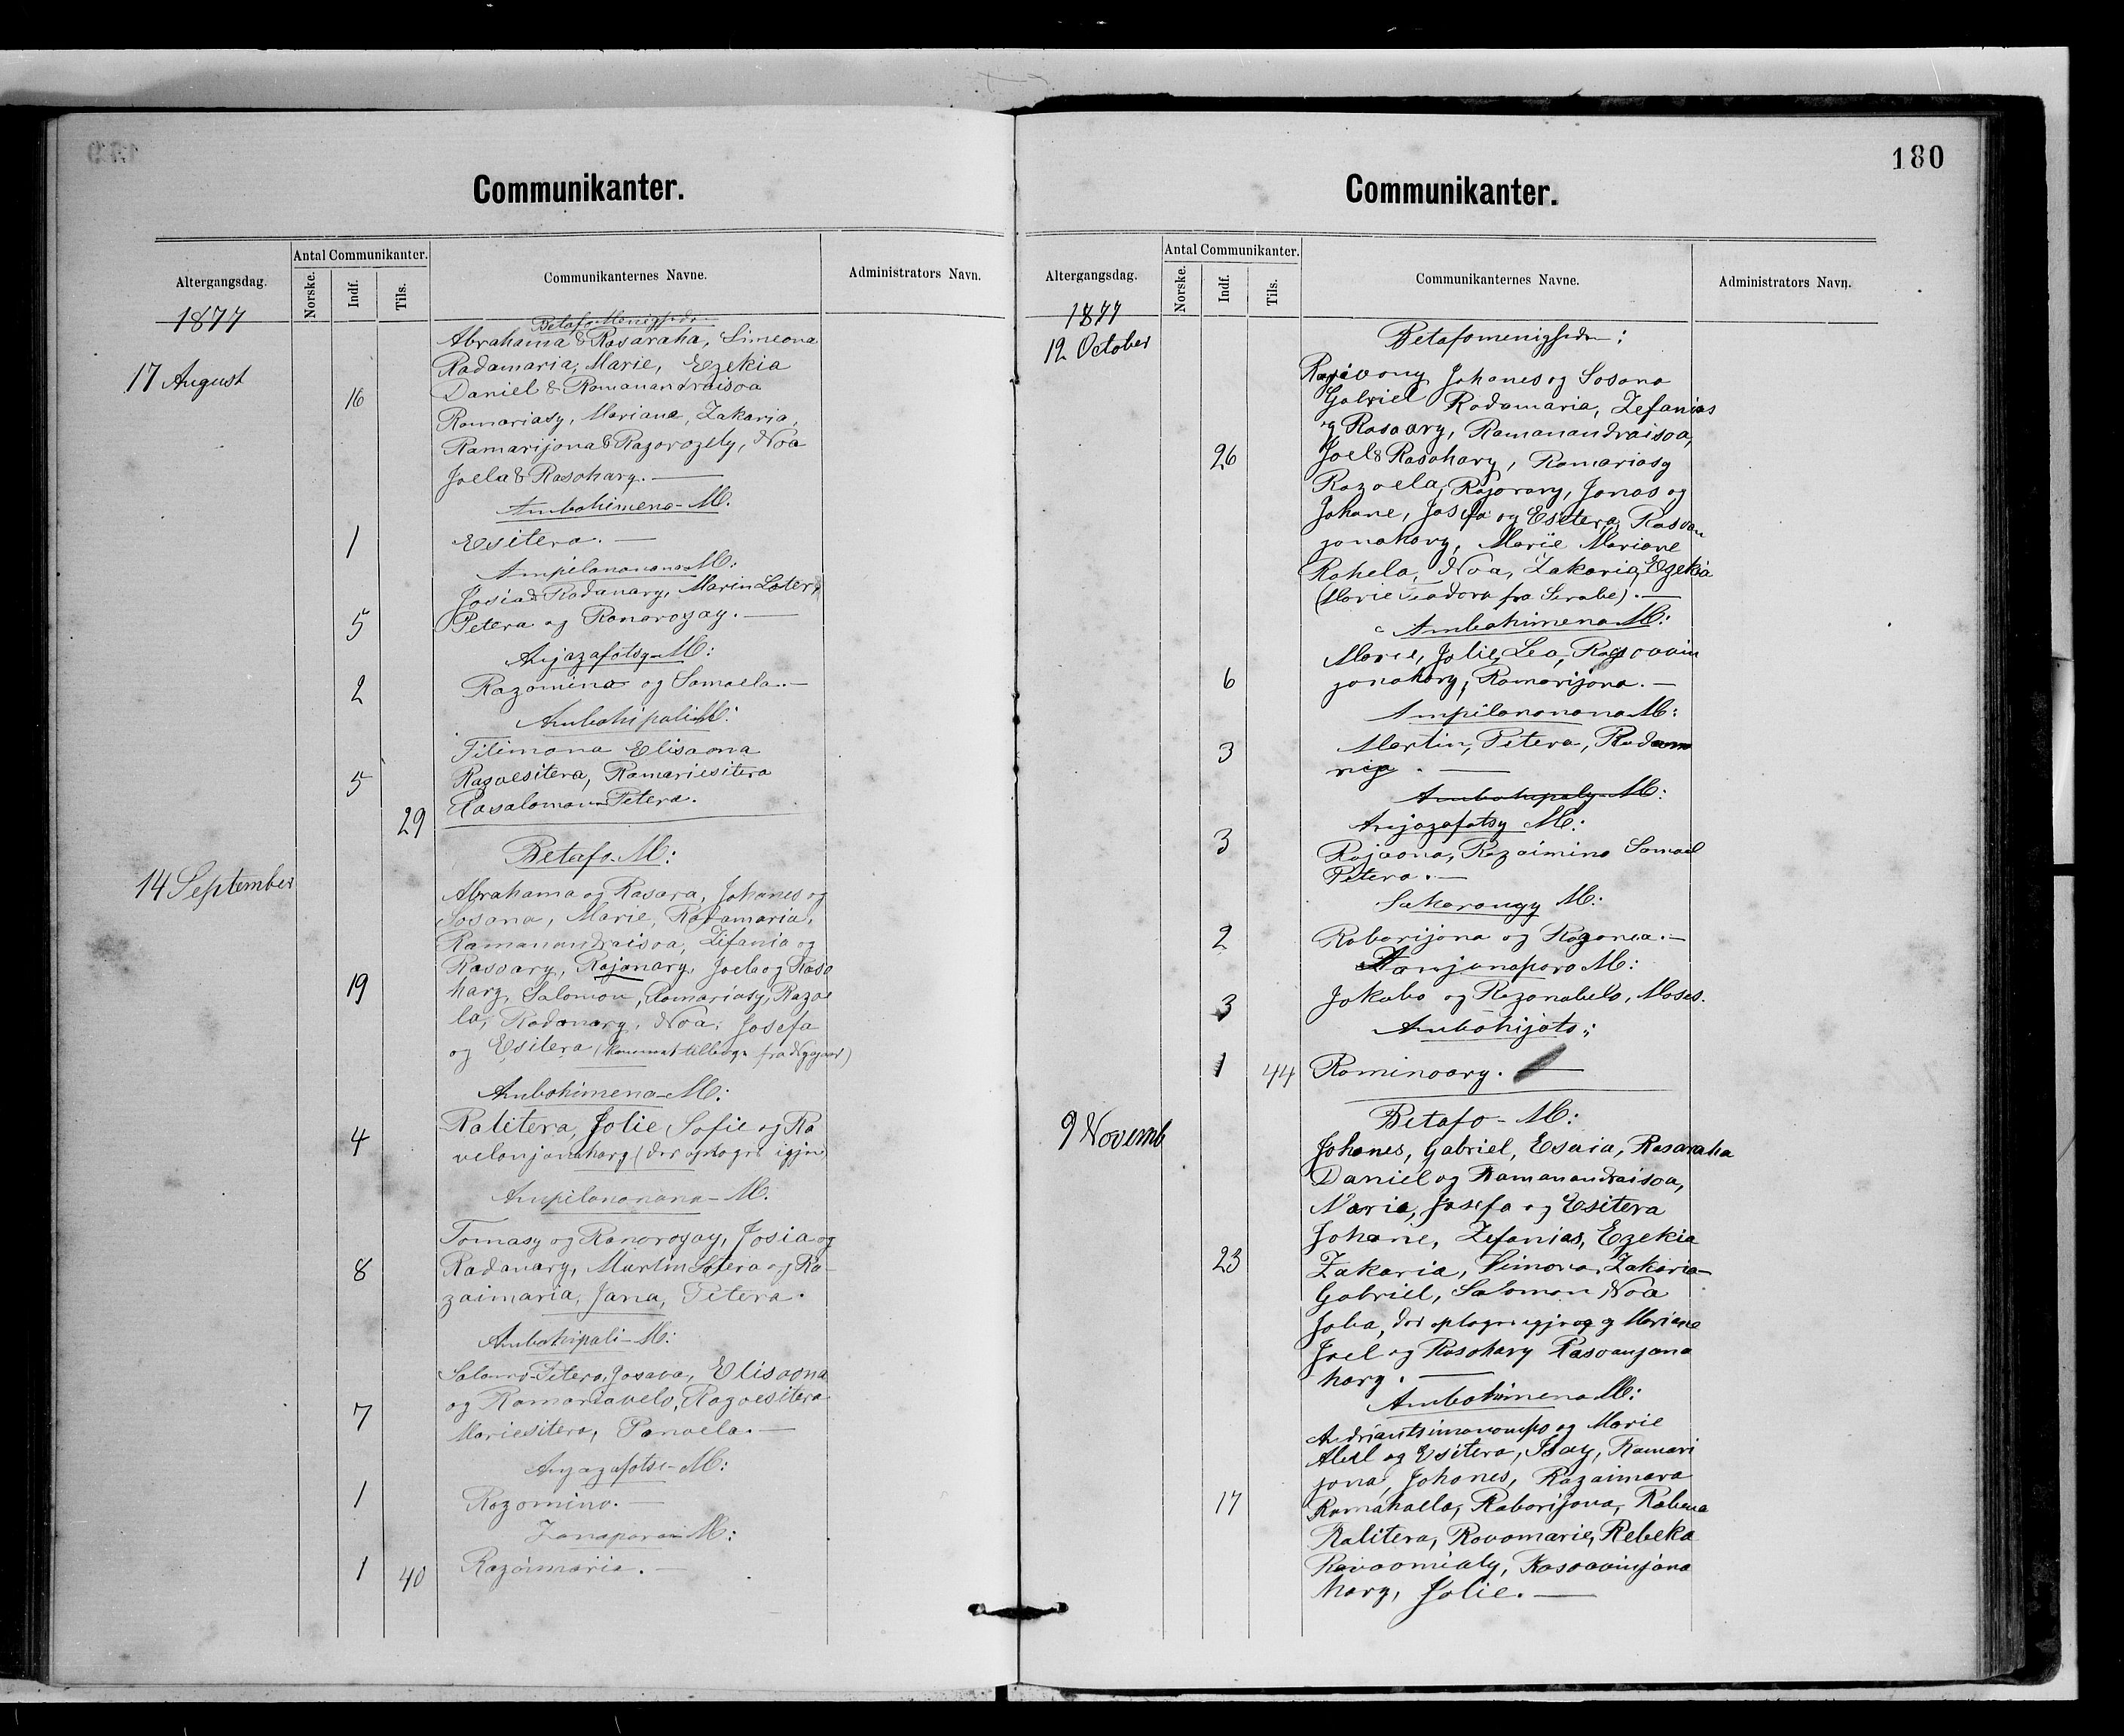 Communikanter.
Altergangsdag.
Antal Communikanter.
Norske.
Indf.
Tils.
Communikanternes Navne.
Administrators Navn.
1877
Betafo Menighed
Abrahama & Rasaraha, Simeona
17 August
Radamaria, Marie, Ezekia
16
Daniel & Ramanandraisoa
Ramariasy, Mariane, Zakaria,
Ramarijona & Razorozely, Noa
Joela & Rasohary. —
Ambohimena-M.
1
Esitera. —
Ampilanonana M:
Josia & Radanary, Martin Loter &
5
Petera og Ranorozay. —
Anjazafotsy-M:
2
Razomina og Samoela. —
Ambohipali M:
Filimona Elisaona
5
Razoesitera, Ramariesitera
29
Rasalomon-Petera.
Betafo-M:
14 September
Abrahama og Rasara, Johanes og
Sosana, Marie, Radamaria,
Ramanandraisoa, Zefania og
Rasoary, Rajanary, Joela og Raso
19
hary, Salomon, Ramariasy, Razoe
la, Radanary, Noa, Josefa
og Esitera
Ambohimena-M:
4
Ralitera, Jolie Sofie og Ra
velonjanahary (der optoges igjen)
Ampilanonana-M.
Tomasy og Ranorozay, Josia og
8
Radanary, Martin Lotera og Ra-
zaimaria, Jana, Petera.
Ambohipali-M:
Petera, Josava, Elisaona
og Ramariavelo, Razoesitera
7
Mariesitera, Panoela. —
Anjazafotsi-M:
1
Razomino. —
M:
1 40
Razaimaria. —
180
Communikanter.
Altergangsdag.
Antal Communikanter.
Norske.
Indf.
Tils.
Communikanternes Navne.
Administrators Navn.
1877
12 October
Betafomenigheden:
Johanes og Sosana
Gabriel Radamaria, Zefanias
og Rasoary, Ramanandraisoa,
26
Joel & Rasohary, Ramariasy
Razoela, Razorary, Jonas og
Johane, Josefa og Esitera, Rasoan
janahary, Marie Mariane
Rahela, Noa, Zakaria, Ezekia
(Marie fra Sirabe). —
Ambohimena M:
Marie, Jolie, Lea, Rasoavin
6
janahary, Ramarijona. —
Ampilanonana M:
3
Martin, Petera, Radama
ria. —
Ambohipaly M:
Anjazafotsy M:
3
Rajaona, Razaimino Samoel
Petera. —
M:
2
Raborijona og Razanea. —
M:
3
Jakobo og Razanabelo, Moses.
Ambohijato:
1 44
Raminoary. —
Betafo-M:
9 Novemb
Johanes, Gabriel, Esaia, Rasaraha
Daniel og Ramanandraisoa,
Maria, Josefa og Esitera
Johane, Zefanias, Ezekia
23
Zakaria, Simona, Zakaria
Gabriel, Salomon Noa
Joba, der optoges igjen og Mariane
Joel og Rasohary Rasoanjana
hary. —
Ambohimena M:
Andriantsimanompo og Marie
Abel og Esitera, Isay, Ramari
jona, Johanes, Razaimara
17
Ramahaela, Raborijona, Rabena
Ralitera, Ravomarie, Rebeka
Ravaomialy, Rasoavinjana
hary, Jolie. —